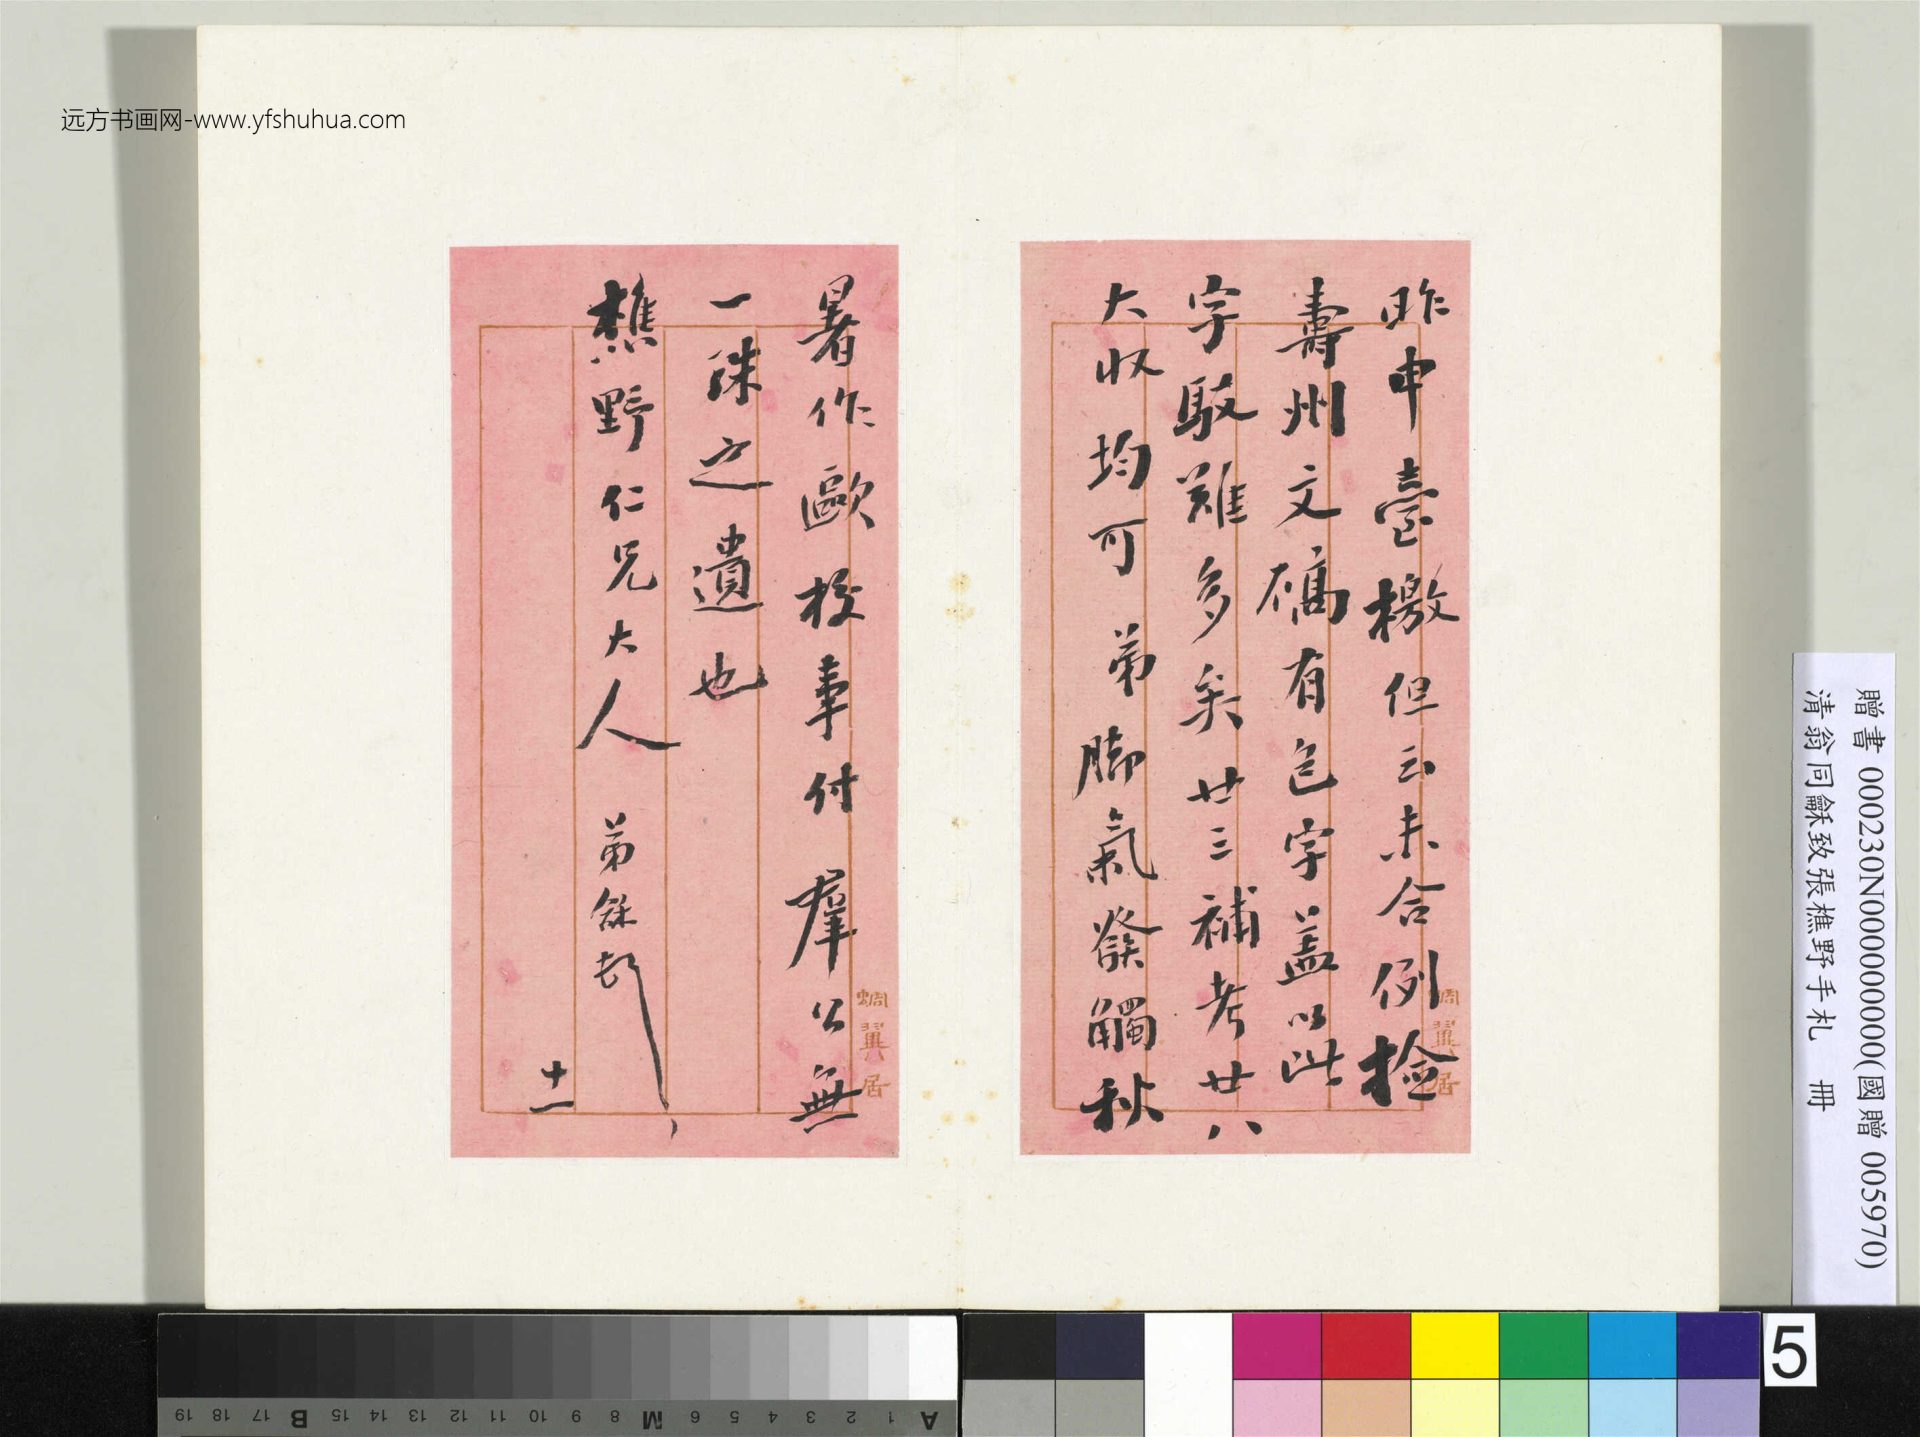 远方书画网-www.yfshuhua.com
昨申臺檄但云未合例撿
壽州文礄有包字盖以此
字駮難多矣廿三補考廿八
大收均可弟腳氣發觸秋
暑作歐校事付羣公無
一殊之遺也
樵野仁兄大人 弟龢頓
十一
蜩翼居
蜩翼居
贈書 000230N000000000(國贈 005970)
清翁同龢致張樵野手札 冊
5
A 1 2 3 4 5 6 M 8 9 10 11 12 13 14 15 B 17 18 19